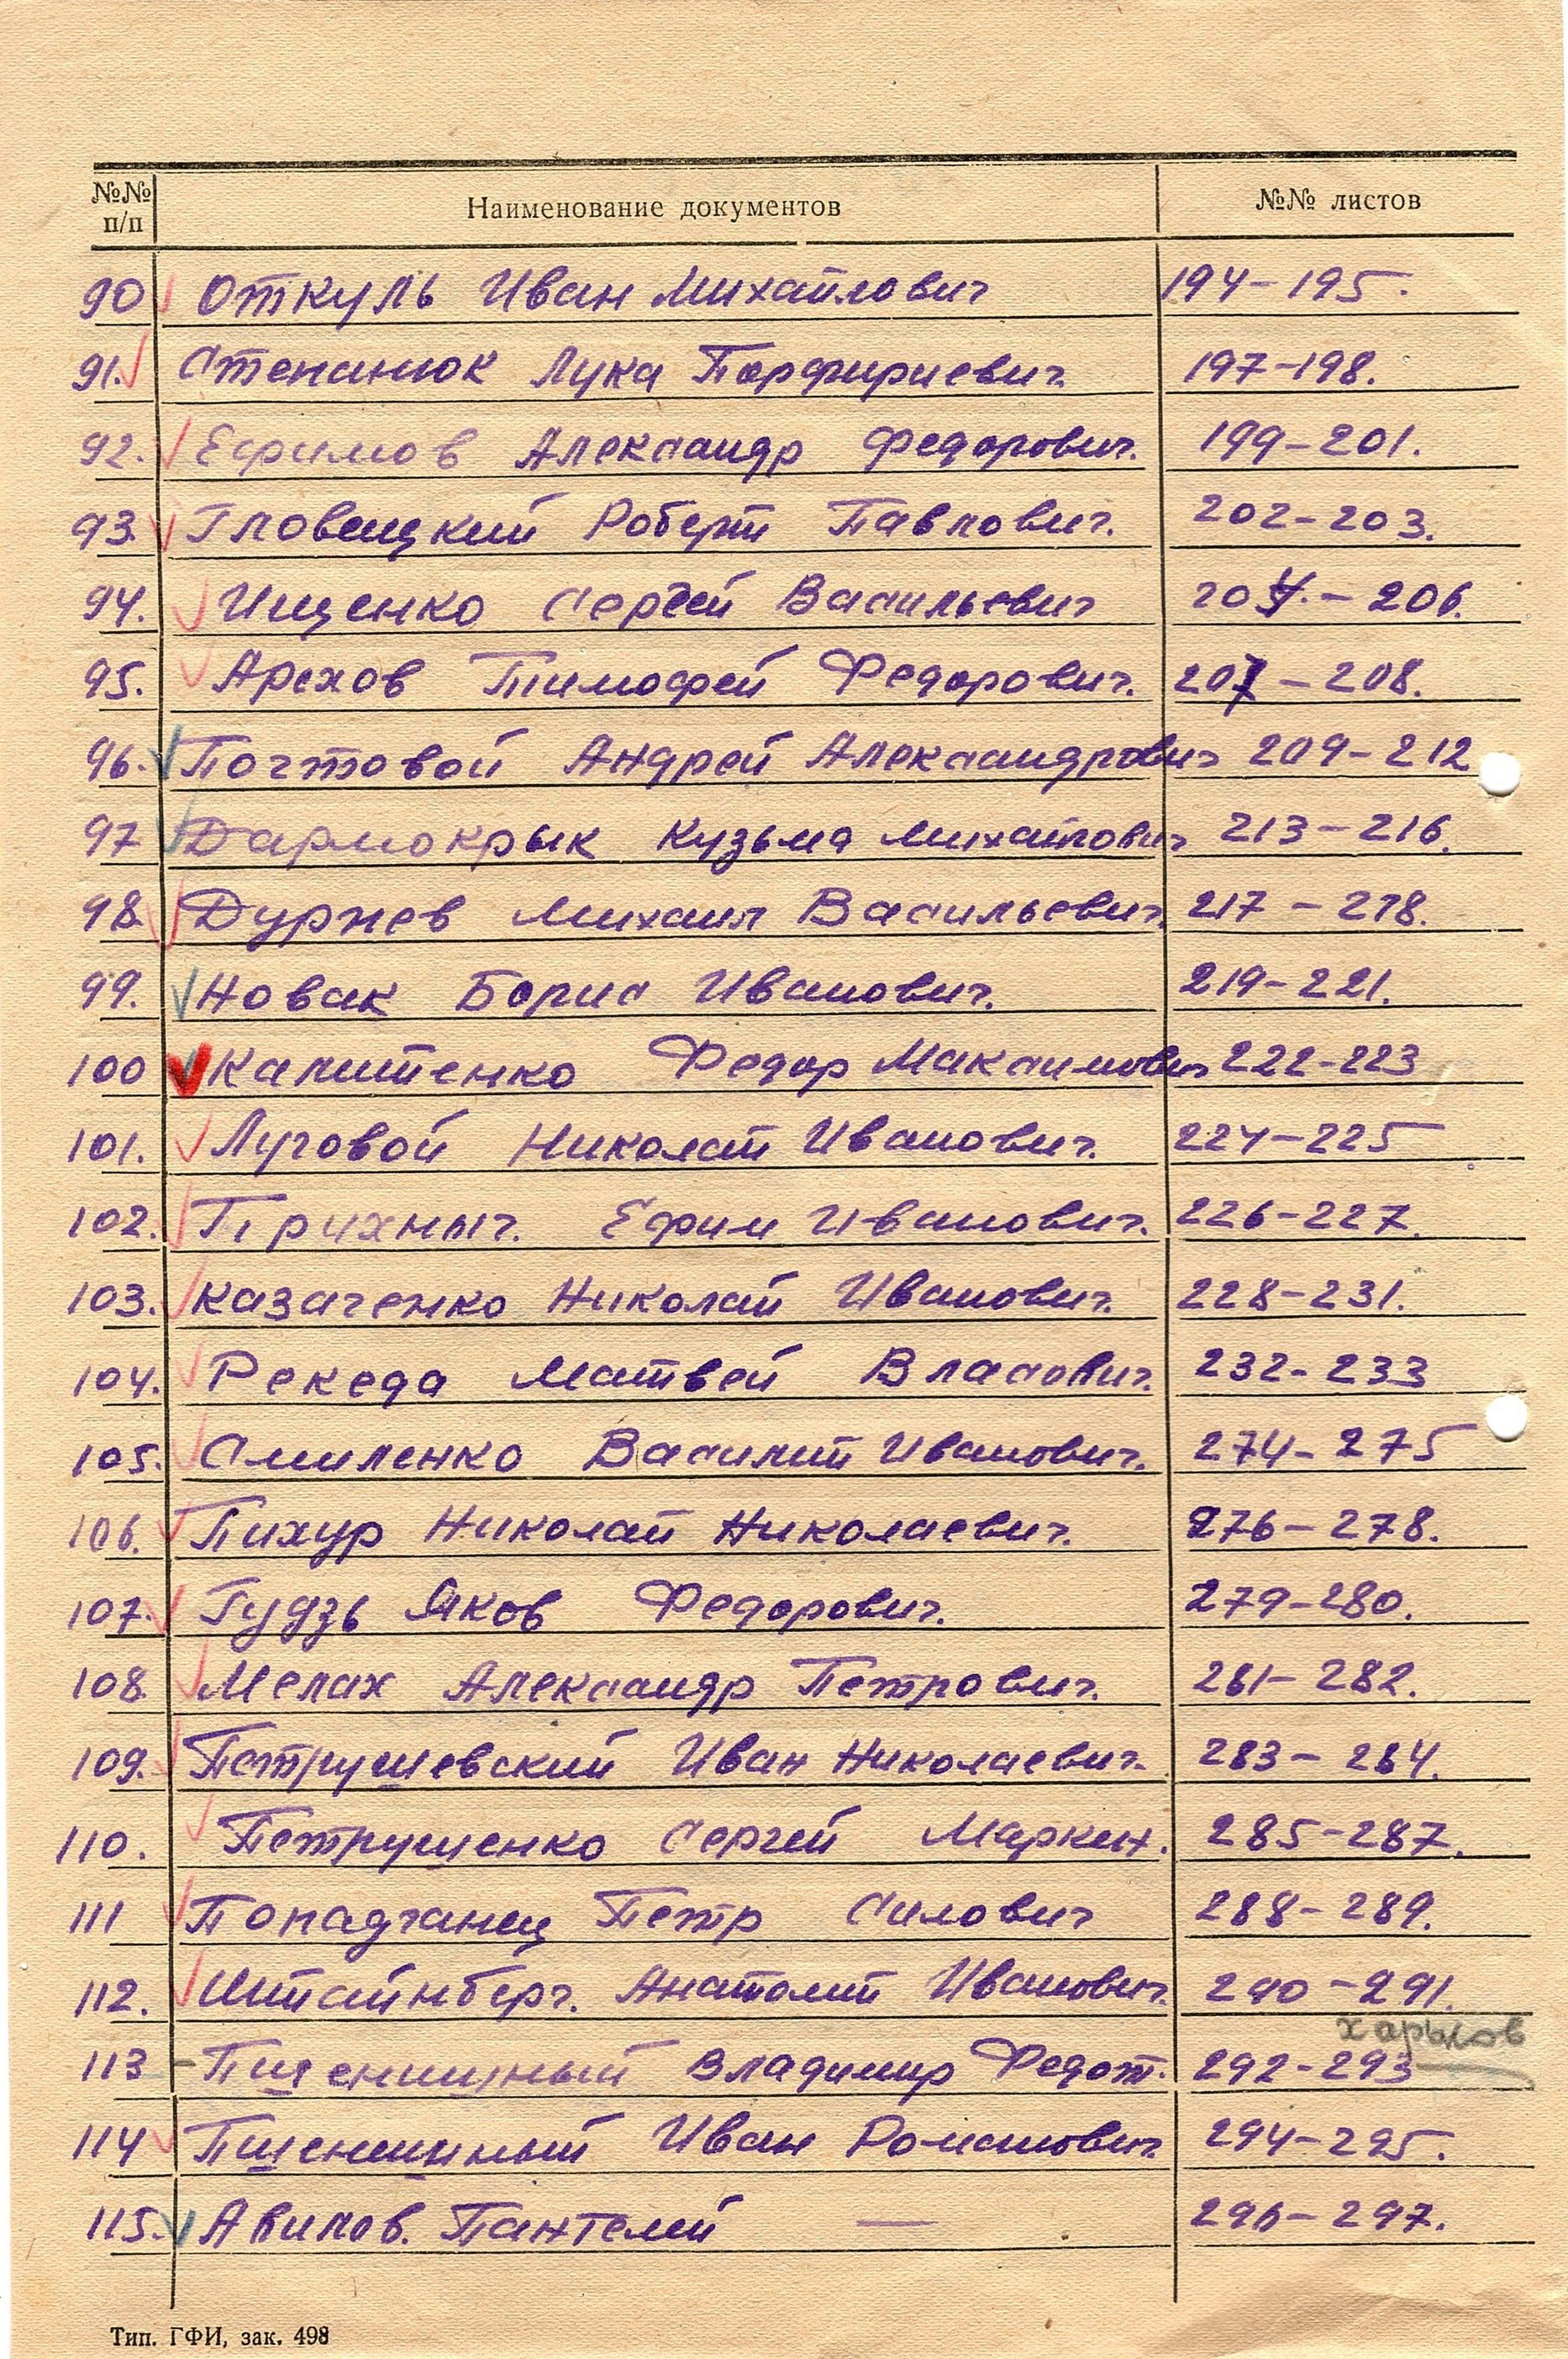 №№ п/п Наименование документов №№ листов
90 Откуль Иван Михайлович 194-195.
91. Степанюк Лука Порфириевич. 197-198.
92. Ефимов Александр Федорович. 199-201.
93. Гловацкий Роберт Павлович. 202-203.
94. Ищенко Сергей Васильевич 204.-206.
95. Арехов Тимофей Федорович. 207-208.
96. Почтовой Андрей Александрович 209-212
97 Дармокрык Кузьма Михайлович 213-216.
98. Дурнев Михаил Васильевич 217-218.
99. Новак Борис Иванович. 219-221.
100 Капитенко Федор Максимович 222-223
101. Луговой Николай Иванович. 224-225
102. Прихныч. Ефим Иванович. 226-227
103. Казаченко Николай Иванович. 228-231.
104. Рекеда Матвей Власович. 232-233
105. Смиленко Василий Иванович. 274-275
106. Пихур Николай Николаевич. 276-278.
107. Гудзь Яков Федорович. 279-280.
108. Мелах Александр Петрович. 281-282.
109. Петрушевский Иван Николаевич. 283-284.
110. Петрушенко Сергей Маркин. 285-287.
111 Попадчанец Петр Силович 288-289.
112. Штайнберг. Анатолий Иванович. 290-291.
Харьков
113 - Пшеничный Владимир Федот. 292-293
114 Пшеничный Иван Романович. 294-295.
115. Авилов. Пантелей — 296-297.
Тип. ГФИ, зак. 498